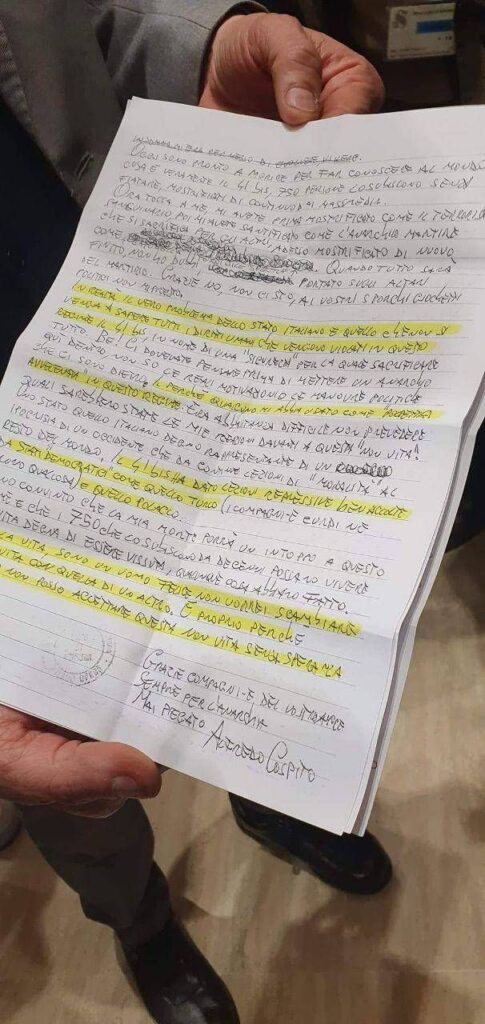 OGGI SONO PRONTO A MORIRE PER FAR CONOSCERE AL MONDO
COSA È VERAMENTE IL 41 BIS, 750 PERSONE LO SUBISCONO SENZA
FIATARE, MOSTRIFICATI DI CONTINUO DAI MASSMEDIA.
ORA TOCCA A ME, MI AVETE PRIMA MOSTRIFICATO COME IL TERRORISTA
SANGUINARIO POI MI AVETE SANTIFICATO COME L'ANARCHICO MARTIRE
CHE SI SACRIFICA PER GLI ALTRI, ADESSO MOSTRIFICATO DI NUOVO
COME
FINITO, NON HO DUBBI, QUANDO TUTTO SARÀ
PORTATO SUGLI ALTARI
DEL MARTIRIO. GRAZIE NO, NON CI STO, AI VOSTRI SPORCHI GIOCHETTI
POLITICI NON MI PRESTO.
IN REALTÀ IL VERO PROBLEMA DELLO STATO ITALIANO È QUELLO CHE NON SI
VENGA A SAPERE TUTTI I DIRITTI UMANI CHE VENGONO VIOLATI IN QUESTO
REGIME IL 41 BIS, IN NOME DI UNA "SICUREZZA" PER LA QUALE SACRIFICARE
TUTTO. BE'! CI DOVEVATE PENSARE PRIMA DI METTERE UN ANARCHICO
QUI DENTRO, NON SO LE REALI MOTIVAZIONI O LE MANOVRE POLITICHE
CHE CI SONO DIETRO. IL PERCHÉ QUALCUNO MI ABBIA USATO COME "POLPETTA
AVVELENATA" IN QUESTO REGIME. ERA ABBASTANZA DIFFICILE NON PREVEDERE
QUALI SAREBBERO STATE LE MIE REAZIONI DAVANTI A QUESTA "NON VITA".
UNO STATO QUELLO ITALIANO DEGNO RAPPRESENTANTE DI UN
IPOCRISIA DI UN OCCIDENTE CHE DÀ CONTINUE LEZIONI DI "MORALITÀ" AL
RESTO DEL MONDO. IL 41 BIS HA DATO LEZIONI REPRESSIVE BEN ACCOLTE
DA STATI "DEMOCRATICI" COME QUELLO TURCO (I COMPAGNI-E CURDI NE
QUALCOSA) E QUELLO POLACCO.
CONVINTO CHE LA MIA MORTE PORRÀ UN INTOPPO A QUESTO
E CHE I 750 CHE LO SUBISCONO DA DECENNI POSSANO VIVERE
VITA DEGNA DI ESSERE VISSUTA, QUALUNQUE COSA ABBIANO FATTO.
LA VITA, SONO UN UOMO FELICE NON VORREI SCAMBIARE
VITA CON QUELLA DI UN ALTRO. È PROPRIO PERCHÉ
NON POSSO ACCETTARE QUESTA NON VITA SENZA SPERANZA
GRAZIE COMPAGNI-E DEL VOSTRO AMORE
SEMPRE PER L'ANARCHIA
MAI PIEGATO ALFREDO COSPITO